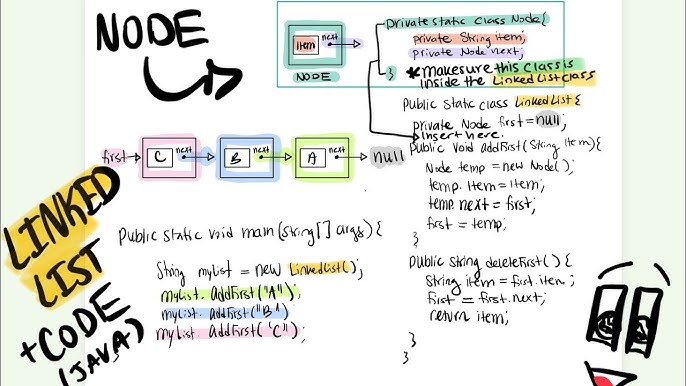 NODE
item
next
NODE
private static class Node{
private String item;
private Node next;
}
* make sure this class is
inside the Linked List class
Public static class Linked List {
private Node first = null;
Insert here.
Public void addFirst(String item){
Node temp = new Node();
temp. item = item;
temp. next = first;
first = temp;
}
Public String deleteFirst() {
String item = first. item;
first = first. next;
return item;
}
}
first
C
next
B
next
A
next
null
LINKED
LIST
+ CODE
(JAVA)
Public static void main (String[] args) {
String mylist = new Linked List();
mylist. AddFirst("A");
mylist. AddFirst("B")
mylist. AddFirst("C");